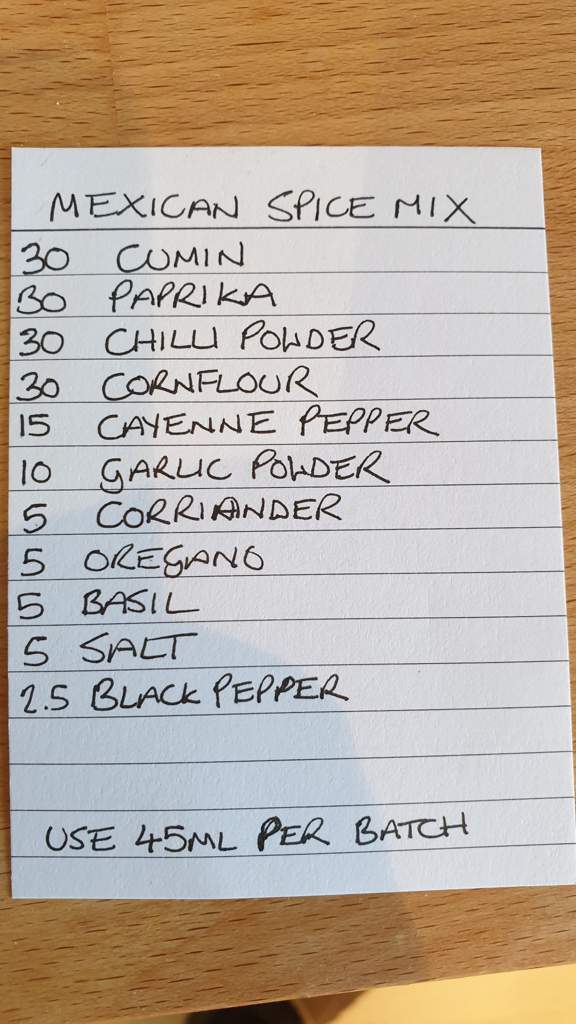 MEXICAN SPICE MIX
30 CUMIN
30 PAPRIKA
30 CHILLI POWDER
30 CORNFLOUR
15 CAYENNE PEPPER
10 GARLIC POWDER
5 CORRIANDER
5 OREGANO
5 BASIL
5 SALT
2.5 BLACK PEPPER
USE 45ML PER BATCH